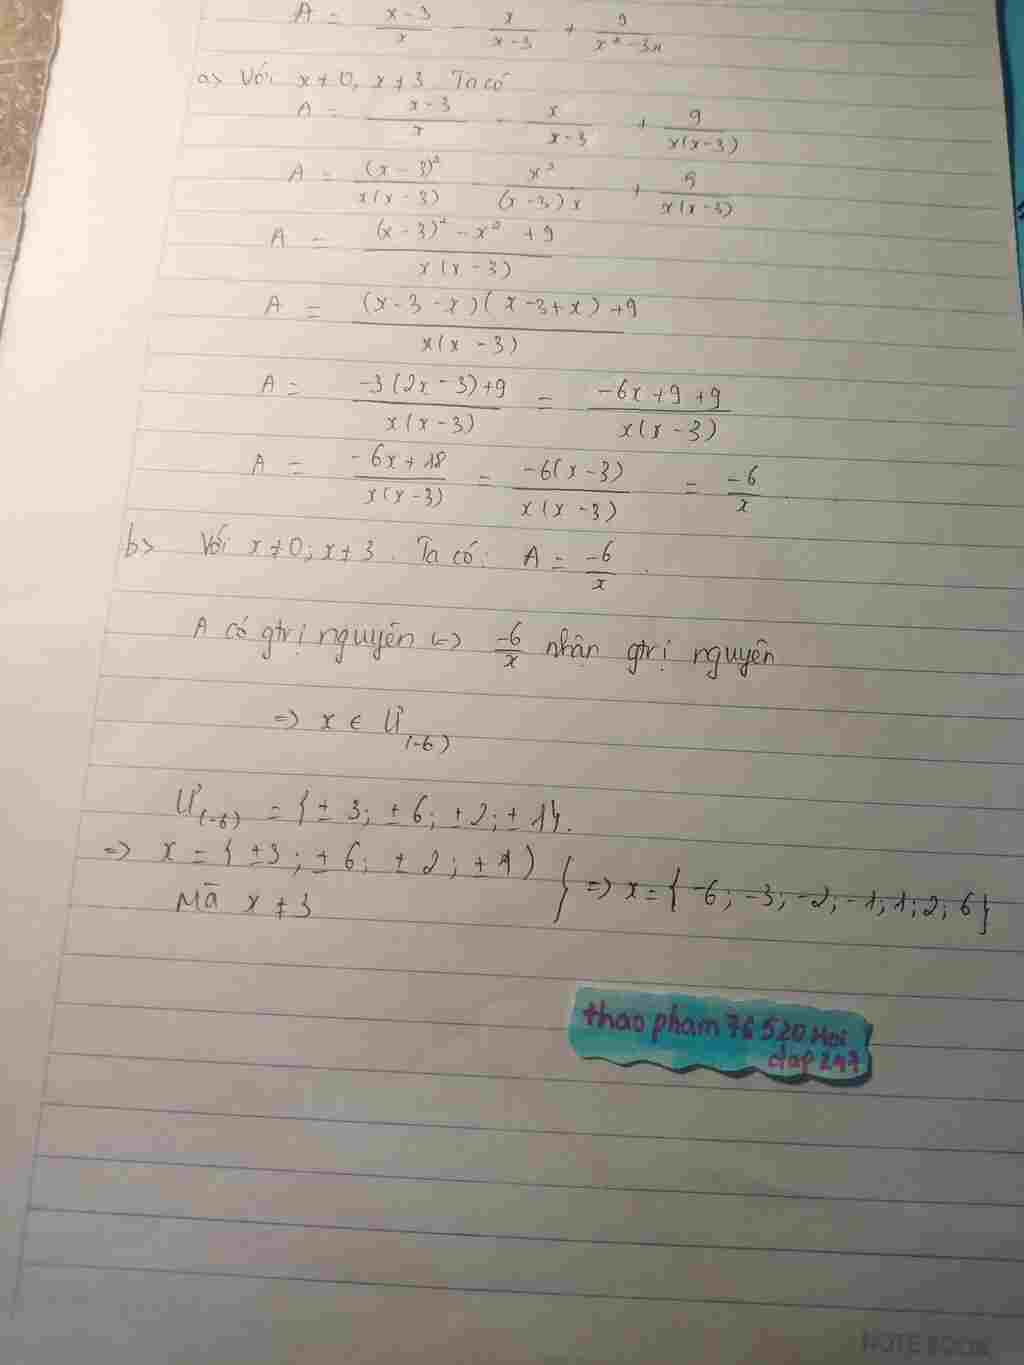 A = \frac{x-3}{x} - \frac{x}{x-3} + \frac{9}{x² - 3x}
a> Với x ≠ 0, x ≠ 3 Ta có
A = \frac{x-3}{x} - \frac{x}{x-3} + \frac{9}{x(x-3)}
A = \frac{(x-3)²}{x(x-3)} - \frac{x²}{(x-3)x} + \frac{9}{x(x-3)}
A = \frac{(x-3)² - x² + 9}{x(x-3)}
A = \frac{(x-3-x)(x-3+x)+9}{x(x-3)}
A = \frac{-3(2x-3)+9}{x(x-3)} = \frac{-6x+9+9}{x(x-3)}
A = \frac{-6x+18}{x(x-3)} = \frac{-6(x-3)}{x(x-3)} = \frac{-6}{x}.
b> Với x ≠ 0; x ≠ 3. Ta có: A = \frac{-6}{x}.
A có gtrị nguyên <-> \frac{-6}{x} nhận gtrị nguyên
=> x ∈ Ư(-6)
Ư(-6) = {± 3; ± 6; ± 2; ± 1}.
=> x = {±3; ± 6; ± 2; ± 1) } => x = {-6; -3; -2; -1; 1; 2; 6}
Mà x ≠ 3
thao pham 76 520 Hoi
dap 247
NOTE BOOK